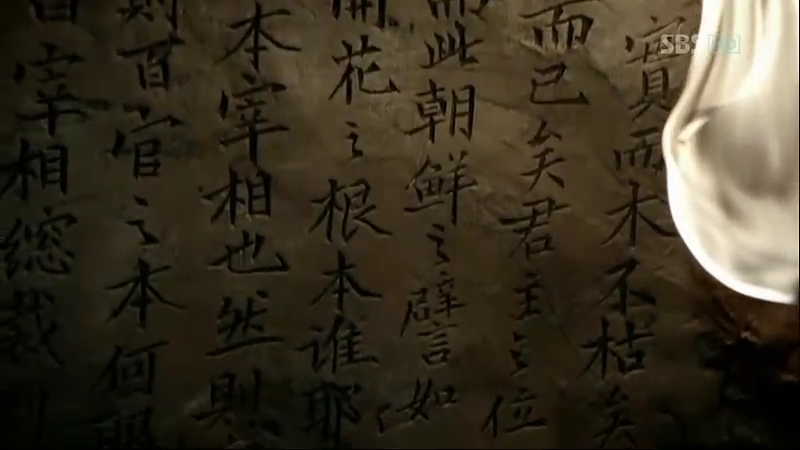 SBS HD
實而木不枯矣
而已矣君主之位
而此朝鮮之譬如
開花之根本誰耶
本宰相也然則
則百官之本何耶
宰相總裁